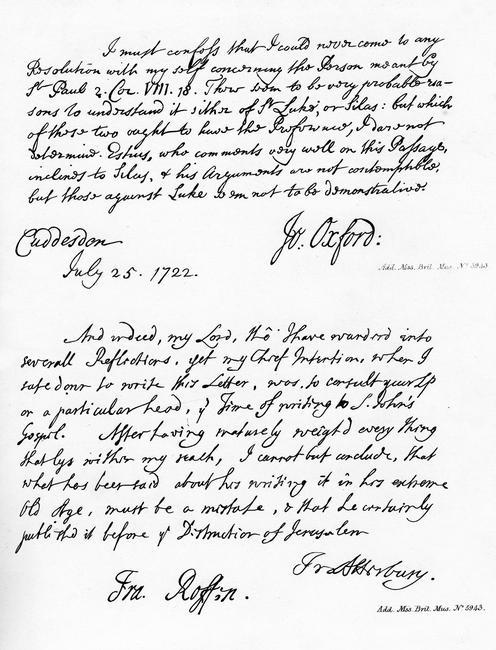 I must confess that I could never come to any
Resolution with my self concerning the Person meant by
St Paul 2. Cor. VIII. 18. There seem to be very probable rea-
sons to understand it either of St Luke, or Silas: but which
of these two ought to have the Preference, I dare not
determine. Esthius, who comments very well on this Passage,
inclines to Silas, & his Arguments are not contemptible,
but those against Luke seem not to be demonstrative.
Cuddesdon
Jo. Oxford:
July 25. 1722.
Add. Mss. Brit. Mus. No 5943
And indeed, my Lord, tho' I have wander'd into
severall Reflections, yet my Chief Intention, when I
sate down to write this Letter, was, to consult your Lp
on a particular head, ye Time of writing to S. John's
Gospel. After having maturely weigh'd every thing
that lys within my reach, I cannot but conclude, that
what has been said about his writing it in his extreme
Old Age, must be a mistake, & that he certainly
publish'd it before ye Distruction of Jerusalem
Fr. Atterbury.
Fra. Roffen.
Add. Mss. Brit. Mus. No 5943.